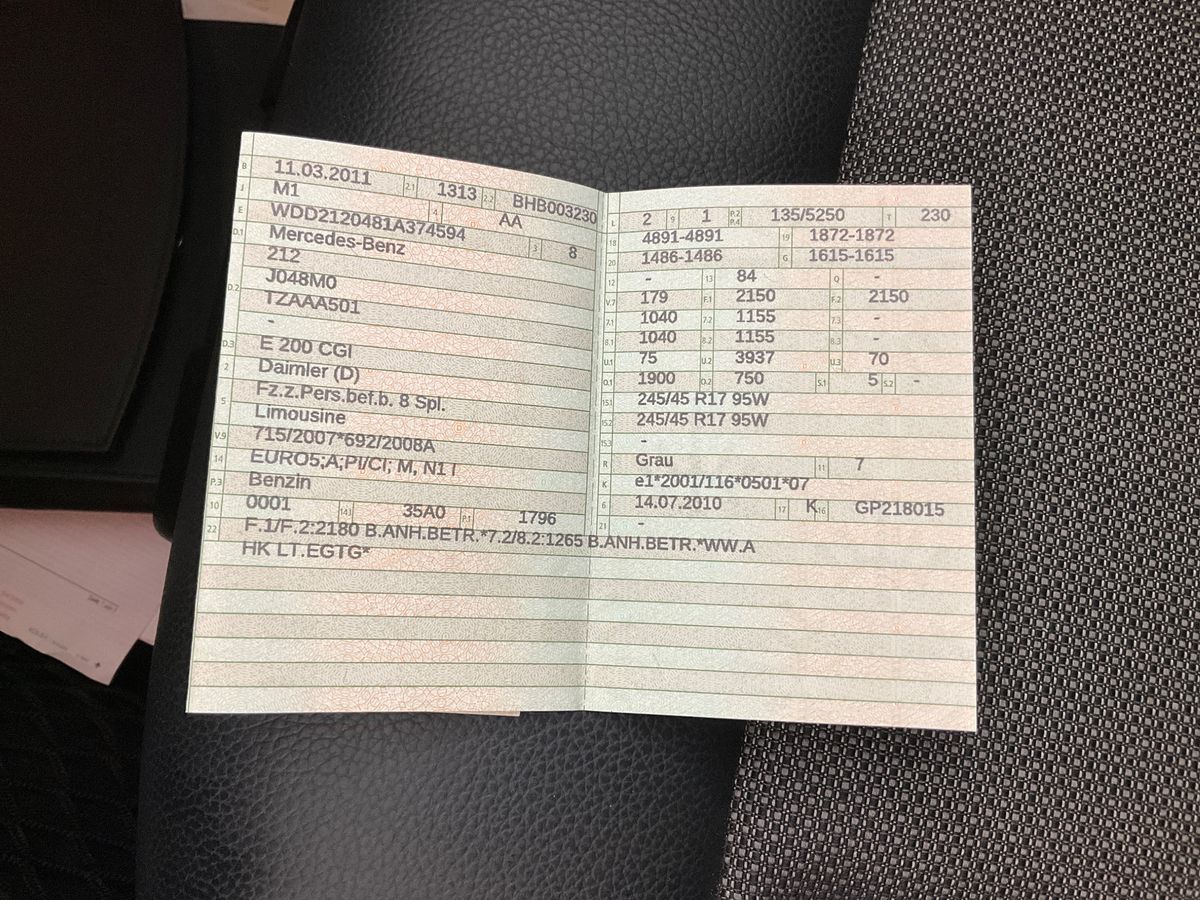 B 11.03.2011 2.1 1313 2.2 BHB003230
J M1 4 AA
E WDD2120481A374594 3 8
D.1 Mercedes-Benz
D.2 212
J048M0
TZAAA501
-
D.3 E 200 CGI
2 Daimler (D)
5 Fz.z.Pers.bef.b. 8 Spl.
Limousine
V.9 715/2007*692/2008A
14 EURO5;A;PI/CI; M, N1 I
P.3 Benzin
10 0001 14.1 35A0 P.1 1796
22 F.1/F.2:2180 B.ANH.BETR.*7.2/8.2:1265 B.ANH.BETR.*WW.A
HK LT.EGTG*
L 2 9 1 P.2 P.4 135/5250 T 230
18 4891-4891 19 1872-1872
20 1486-1486 G 1615-1615
12 - 13 84 Q -
V.7 179 F.1 2150 F.2 2150
7.1 1040 7.2 1155 7.3 -
8.1 1040 8.2 1155 8.3 -
U.1 75 U.2 3937 U.3 70
O.1 1900 O.2 750 S.1 5 S.2 -
15.1 245/45 R17 95W
15.2 245/45 R17 95W
15.3 -
R Grau 11 7
K e1*2001/116*0501*07
6 14.07.2010 17 K 16 GP218015
21 -